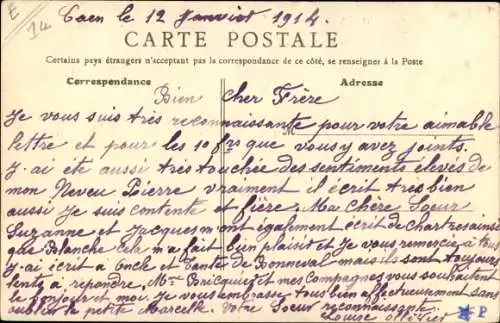 E
14
Caen le 12 Janvier 1914.
CARTE POSTALE
Certains pays étrangers n'acceptant pas la correspondance de ce côté, se renseigner à la Poste
Correspondance
Adresse
Bien Cher Frère
Je vous suis très reconnaissante pour votre aimable
lettre et pour les 10 frs que vous y avez joints.
J'ai été aussi très touchée des sentiments élevés de
mon Neveu Pierre vraiment il écrit très bien
aussi Je suis contente et fière. Ma Chère Soeur
Suzanne et Jacques m'ont également écrit de Chartres ainsi
que Blanche cela m'a fait bien plaisir et Je vous remercie à tous
J'ai écrit à Oncle et Tante de Bonneval mais ils sont toujours
lents à répondre, Mme Bricquiez et mes Compagnes vous souhaitent
le bonjour et moi Je vous embrasse tous bien affectueusement sans
oublier la petite Marcelle. Votre Soeur reconnaissante
Louise Ollivier
P